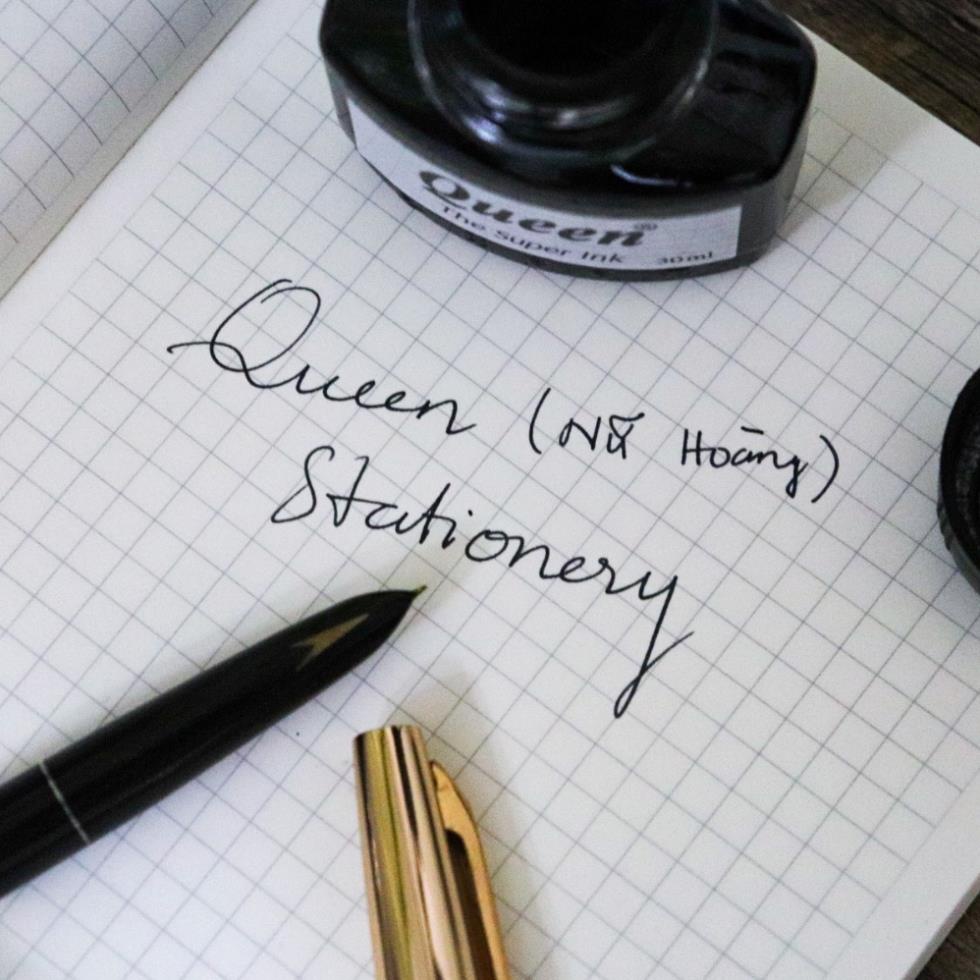 Queen®
The Super Ink 30ml
Queen (Nữ Hoàng)
Stationery